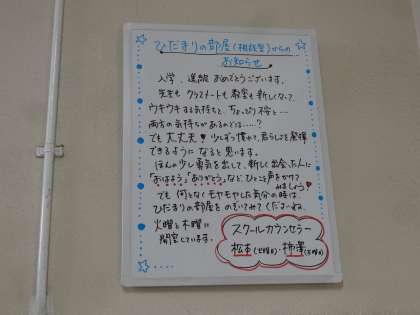 ひだまりの部屋(相談室)からの
お知らせ
入学、進級 おめでとうございます。
先生も クラスメートも 教室も 新しくなって
ウキウキする気持ちと、ちょっぴり不安と…
両方の気持ちがあるのでは……?
でも 大丈夫♥ 少しずつ慣れて、君らしさを発揮
できるように なると思います。
ほんの少し勇気を出して、新しく出会った人に
「おはよう」「ありがとう」など、ひとこと声をかけて
みましょう♥
でも 何となくモヤモヤした気分の時は、
ひだまりの部屋を のぞいてみてくださいね。
火曜と木曜に
開室しています。
スクールカウンセラー
松本(火曜日)・柿澤(木曜日)